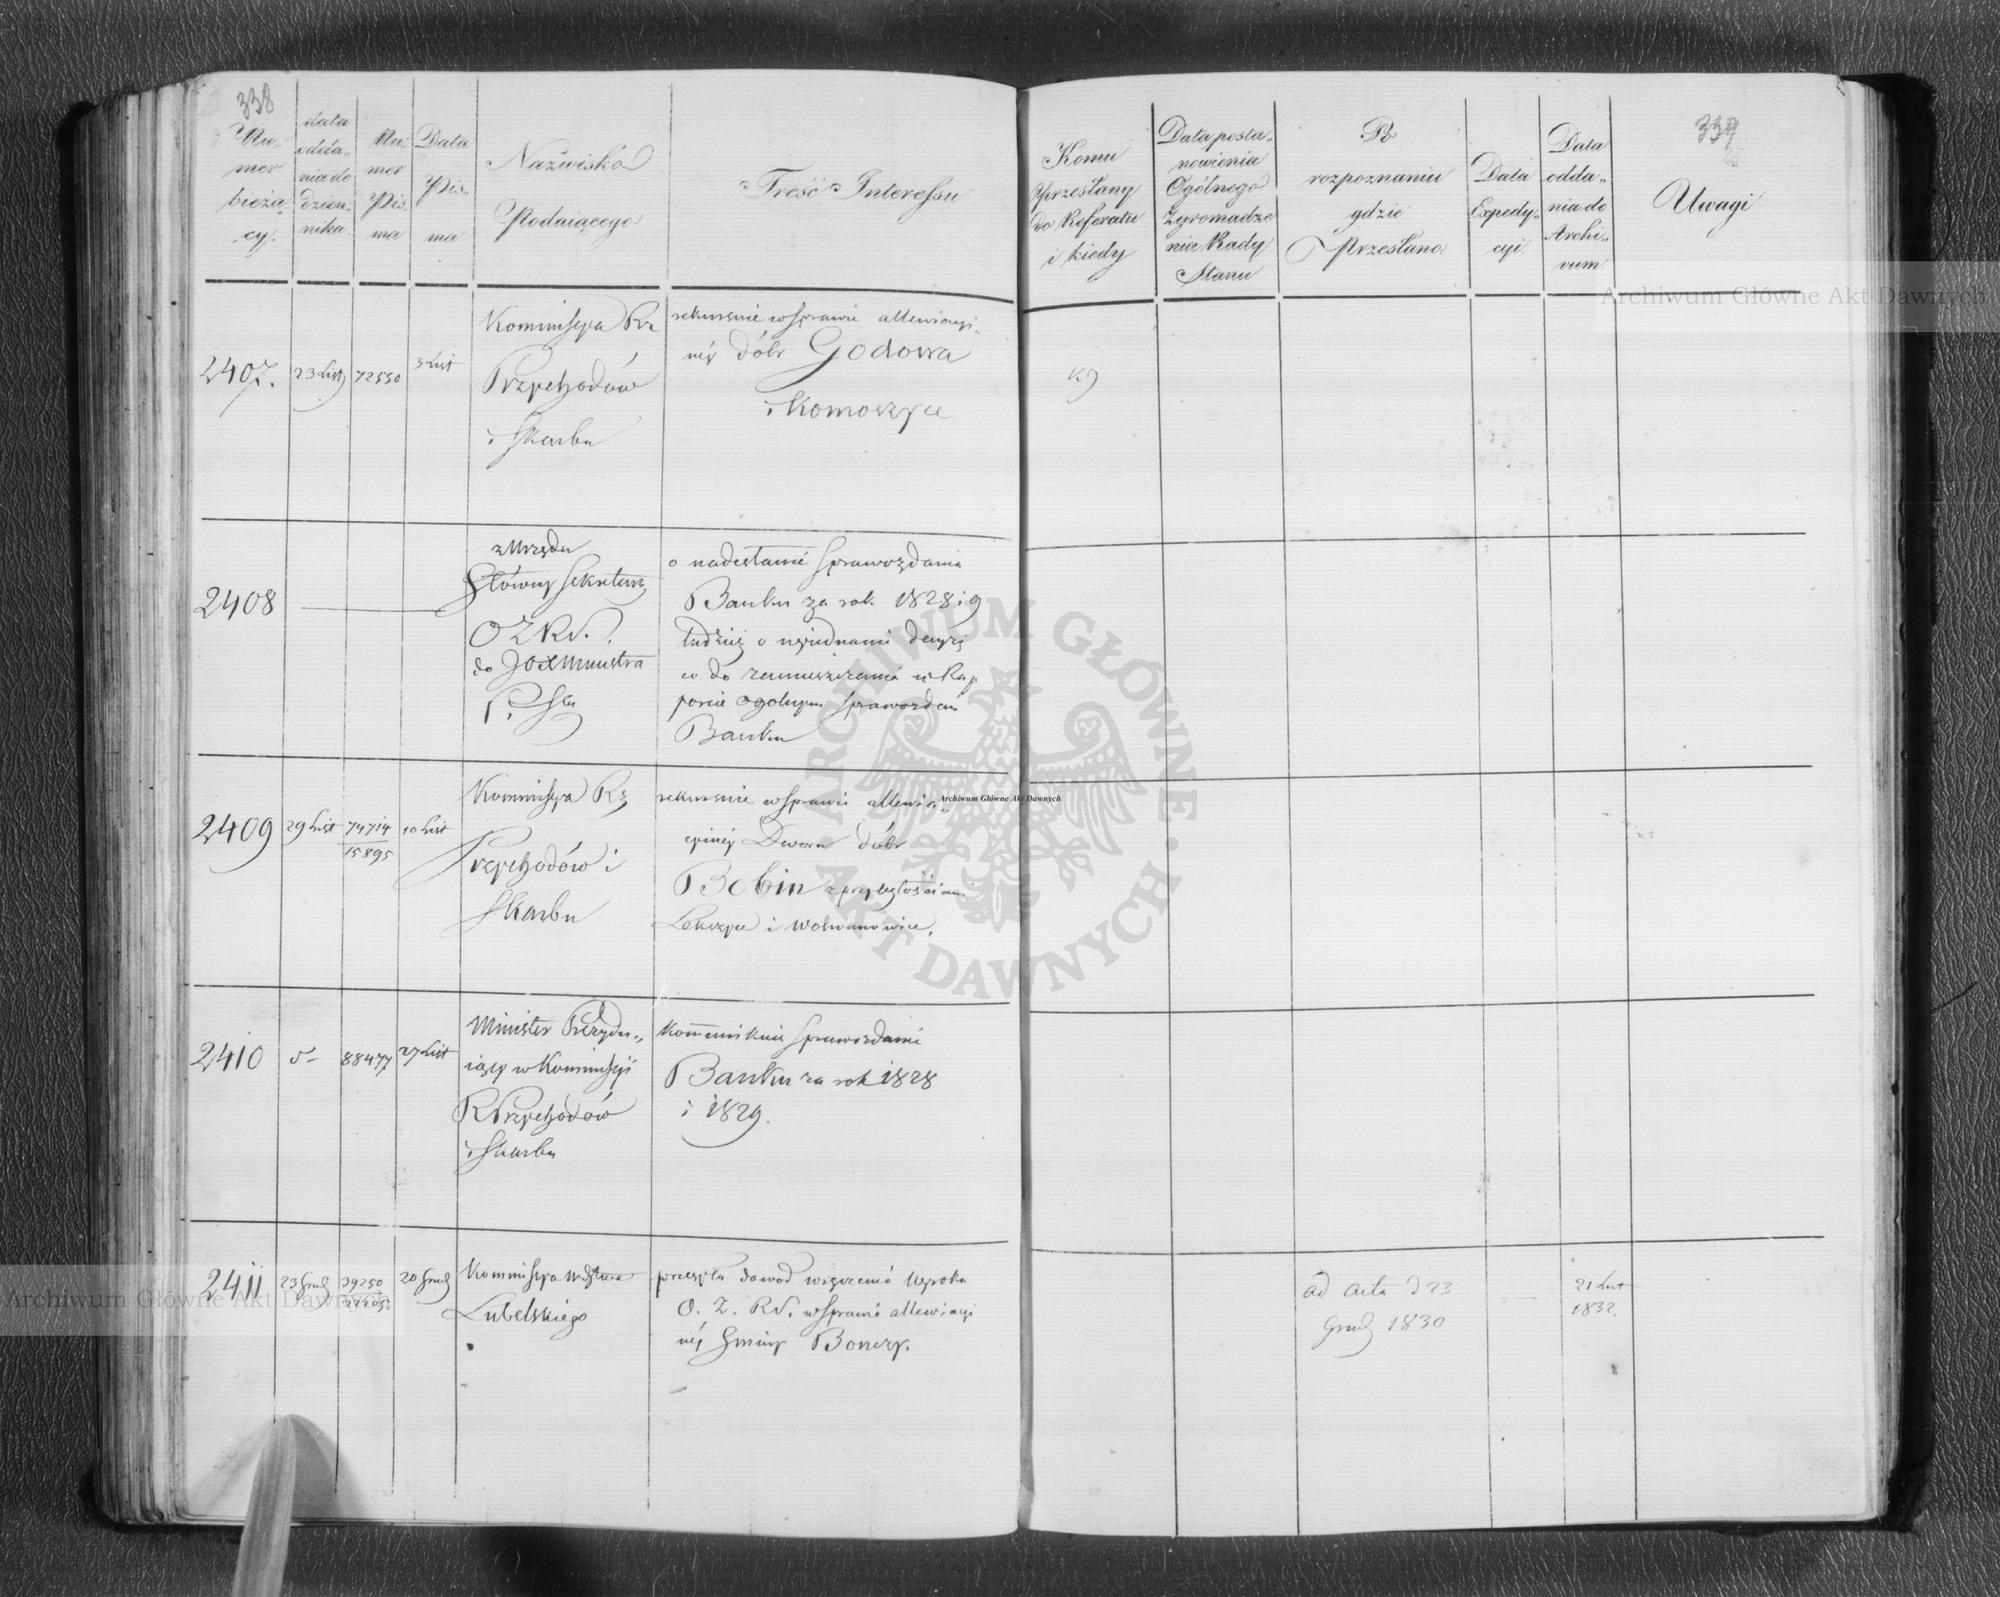 338
Numer bieżący.
data oddania do dziennika.
Numer Pisma
Data Pisma
Nazwisko Podaiącego
Treść Interessu
Komu Przesłany do Referatu i kiedy
Data postanowienia Ogólnego Zgromadzenia Rady Stanu
Po rozpoznaniu gdzie Przesłano.
Data Expedycyi.
Data oddania do Archivum.
Uwagi
339
2407.
23 List
72550
3 List
Kommissya Rz
Przychodów
i Skarbu
rekursuie w sprawie allewiacyi-
néy dóbr Godowa
i Komoszyce
2408
z Urzędu
Główny Sekretarz
OZRS.
do JO X Ministra
P. Sku
o nadesłanie Sprawozdania
Banku za rok 1828 i 9
tudzież o ziednanie decyzi
co do zamieszczenia w Rap
porcie ogolnym sprawozdań
Banku
2409
29 List
74714
15895
10 List
Kommissya Rz
Przychodów i
Skarbu
rekursuie w sprawie allewia„
cyinéy Dworu dóbr
Bobin z przyległościami
i Wolwanowice.
2410
88477
27 List
Minister Prezydu„
iący w Kommissyi
R Przychodów
i Skarbu
kommunikuie Sprawozdanie
Banku za rok 1828
i 1829.
2411
23 Grud
29250
20 Grud
Kommissya Wdztwa
Lubelskiego
przesyła dowod wręczenia Wyroku
O. Z. RS. w Sprawie allewiacyi
néy Gminy Bonczy.
ad acta d 23
Grud 1830
21 Lut
1832.
Archiwum Główne Akt Dawnych
Archiwum Główne Akt Dawnych
Archiwum Główne Akt Dawnych
ARCHIWUM GŁÓWNE AKT DAWNYCH